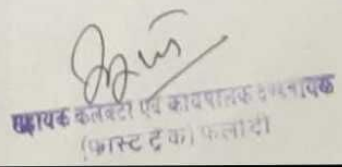 सहायक कलक्टर एवं कार्यपालक दण्डनायक
(फास्ट ट्रेक) फलौदी